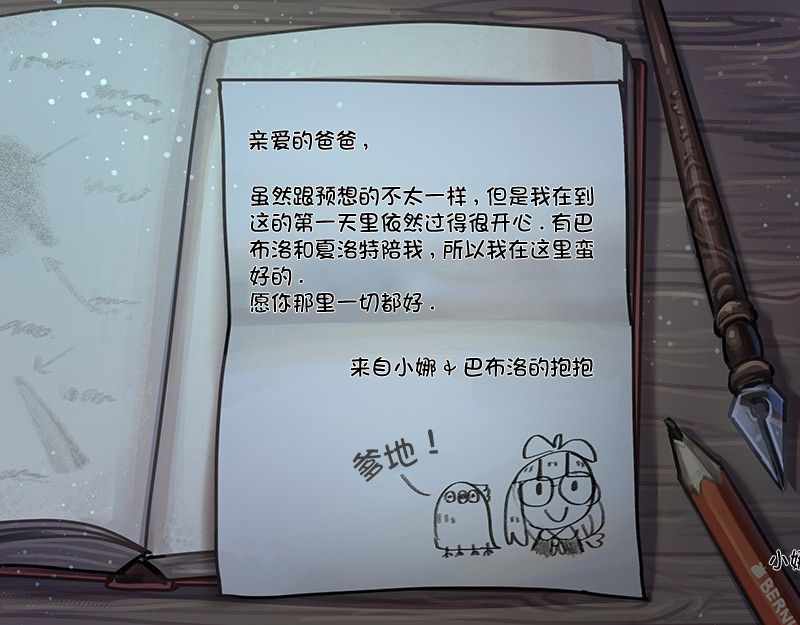 亲爱的爸爸,
虽然跟预想的不太一样,但是我在到
这的第一天里依然过得很开心.有巴
布洛和夏洛特陪我,所以我在这里蛮
好的.
愿你那里一切都好.
来自小娜&巴布洛的抱抱
爹地!
小娜
BERNI